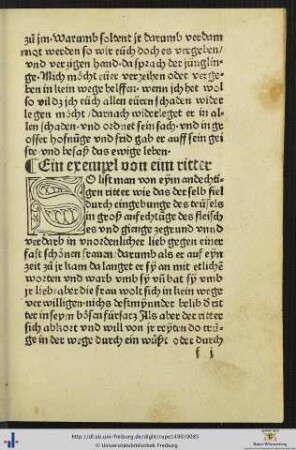 zů jm. Warumb soltent jr darumb verdam
mot werden so wir eüch doch es vergeben/
vnd verzigen hand. da sprach der jüngling
ge. Mich möcht eüer verzeihen odet verge
ben in kein wege helffan. wenn jch het wol
so vil dz jch eüch allen eüren schaden wider
legen möcht/ darnach widerleget er in al-
len schaden. vnd ordnet sein sach. vnd in gr
osser hofnüge vnd frid gab er auff sein gei
ste vnd besaß das ewige leben.
¶Ein exempel von eim ritter
SO list man von eyn andechti
gen ritter wie das der selb fiel
durch eingebunge des teüfels
in groß anfechtüge des fleisch
es vnd gienge zegrund vnnd
verdarb in vnordenlicher lieb gegen einer
fast schönen frauen/ darumb als er auf eyn
zeit zů jr kam da langet er sy an mit etliche
worten vnd warb vmb sy vn̄ bat sy vmb
jr lieb/ aber die frau wolt sich in kein wege
ver willigen. nichs destmynnder belib d rit
ter in seym bösen fürsacz Als aber der ritter
sich abkort vnd will von jr reyten do trü-
ge in der wege durch ein wüst odet durch
f j
http://dl.ub.uni-freiburg.de/diglit/rape1490/0085
© Universitätsbibliothek Freiburg
Baden-Württemberg